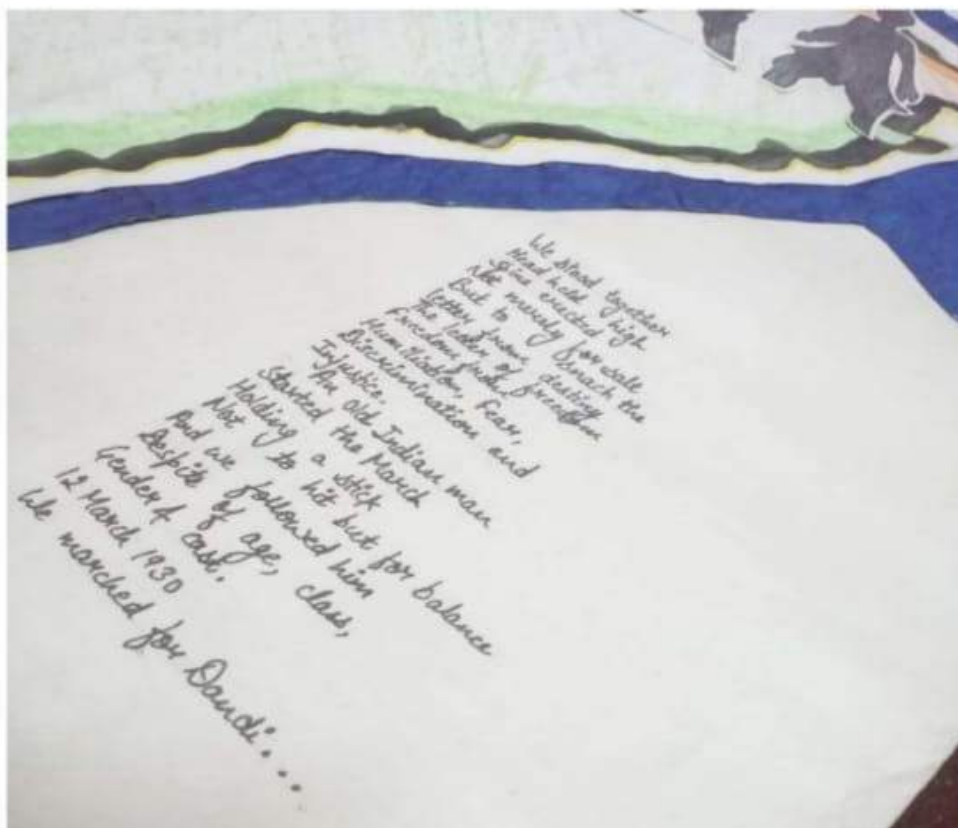 We stood together
Head held high
Spine erected
Not merely for
But to the
dealing
the of freedom
Freedom from
Humiliation, Fear,
Discrimination and
Injustice.
An old Indian man
Started the March
Holding a stick
Not to hit but for balance
And we followed him
Despite of age, class,
Gender & cast.
12 March 1930
We marched for Dandi....